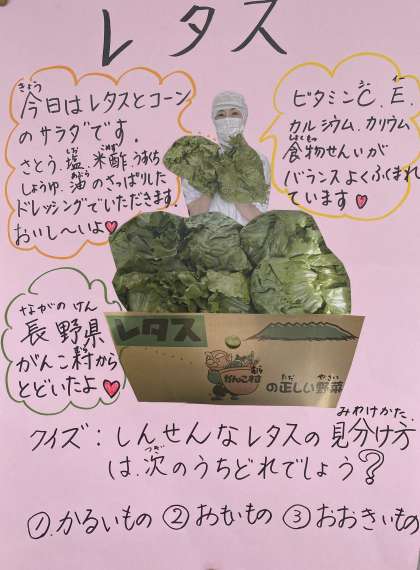 レタス
今日はレタスとコーン
のサラダです。
さとう、塩、米酢、うすくち
しょうゆ、油のさっぱりした
ドレッシングでいただきます。
おいし〜いよ♥
ビタミンC、E、
カルシウム、カリウム、
食物せんいが
バランスよくふくまれ
ています♥
長野県
がんこ村から
とどいたよ♥
レタス
がんこ村
の正しい野菜
クイズ：しんせんなレタスの見分け方
は、次のうちどれでしょう？
①かるいもの ②おもいもの ③おおきいもの